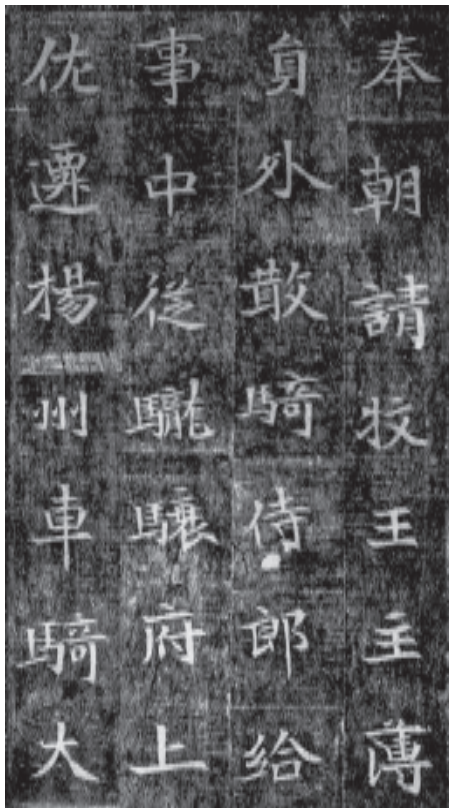 奉朝請牧王主薄
員外散騎侍郎給
事中從龍驤府上
佐遷楊州車騎大